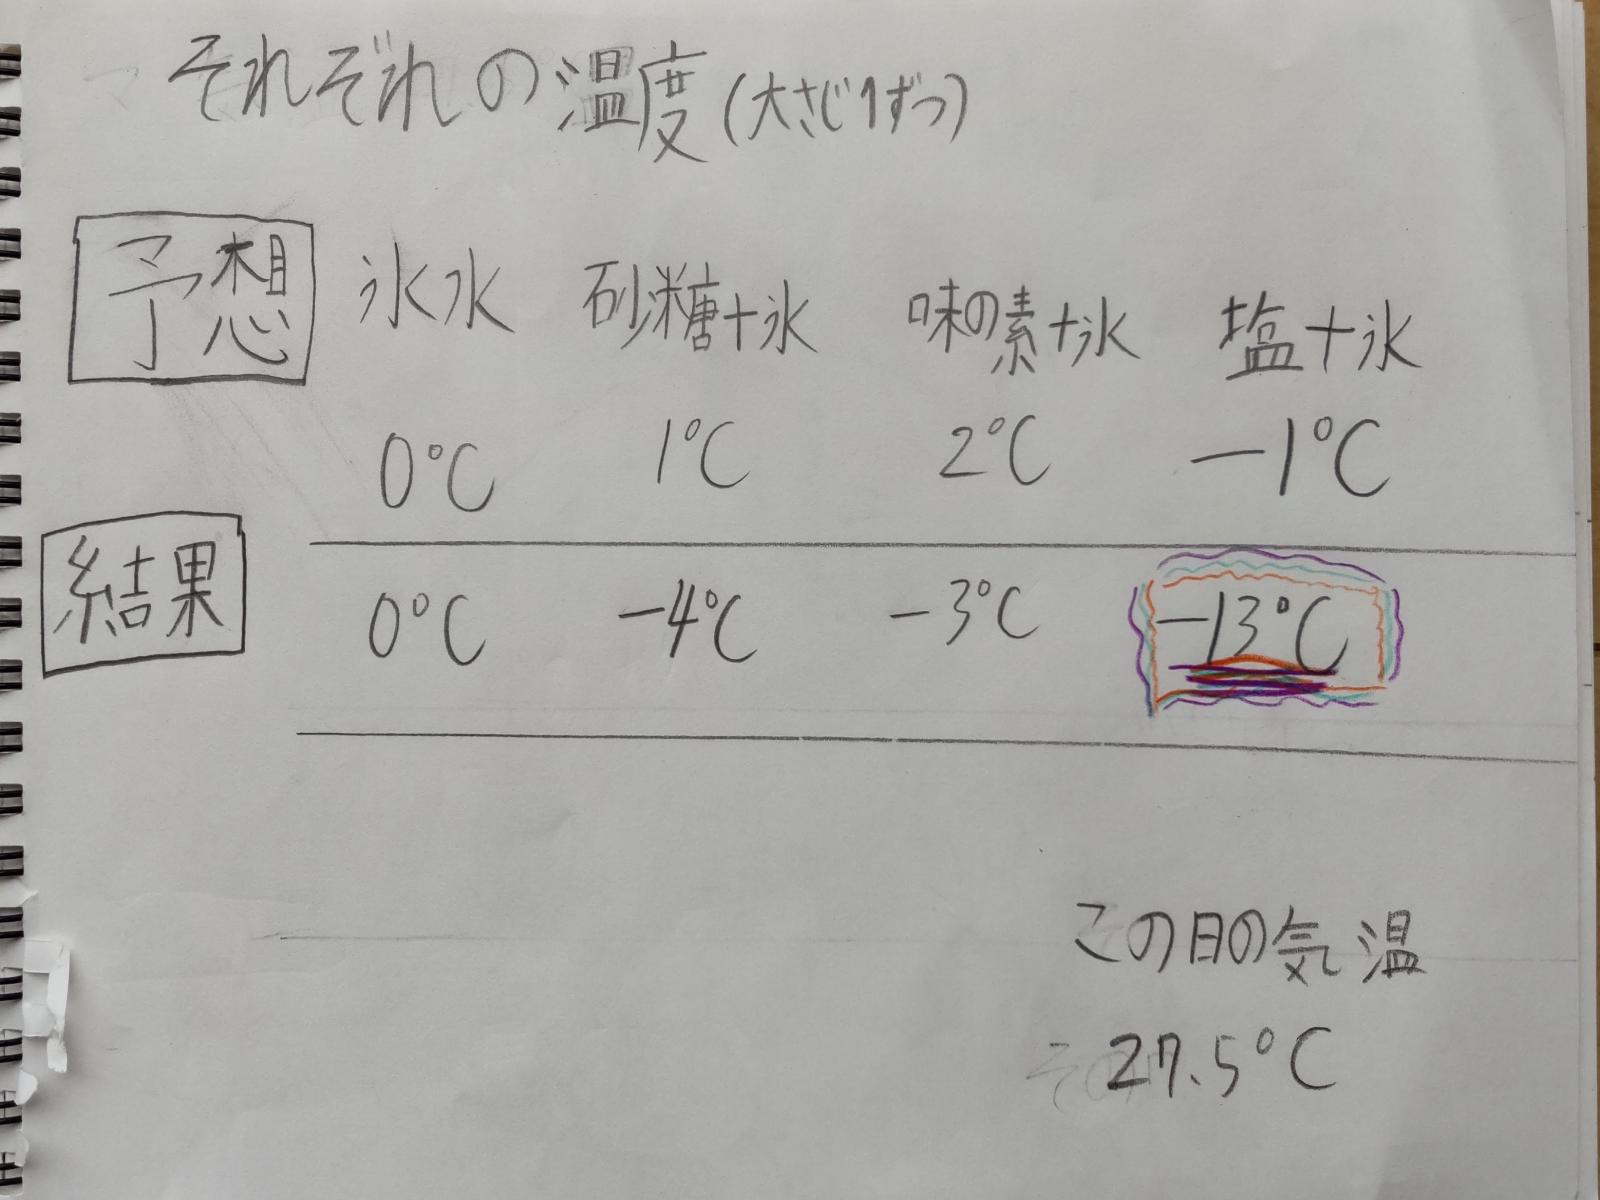 それぞれの温度(大さじ1ずつ)
予想 氷水 砂糖+氷 味の素+氷 塩+氷
0℃ 1℃ 2℃ -1℃
結果 0℃ -4℃ -3℃ -13℃
この日の気温
27.5℃